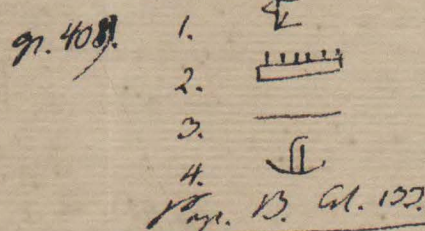 gr. 408. 1.
2.
3.
4.
Pap. B. Col. 133.